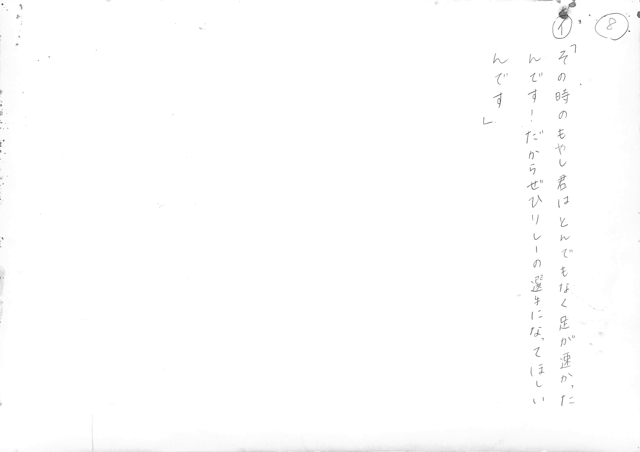 ⑧
①
「その時のもやし君はとんでもなく足が速かった
んです！だからぜひリレーの選手になってほしい
んです」